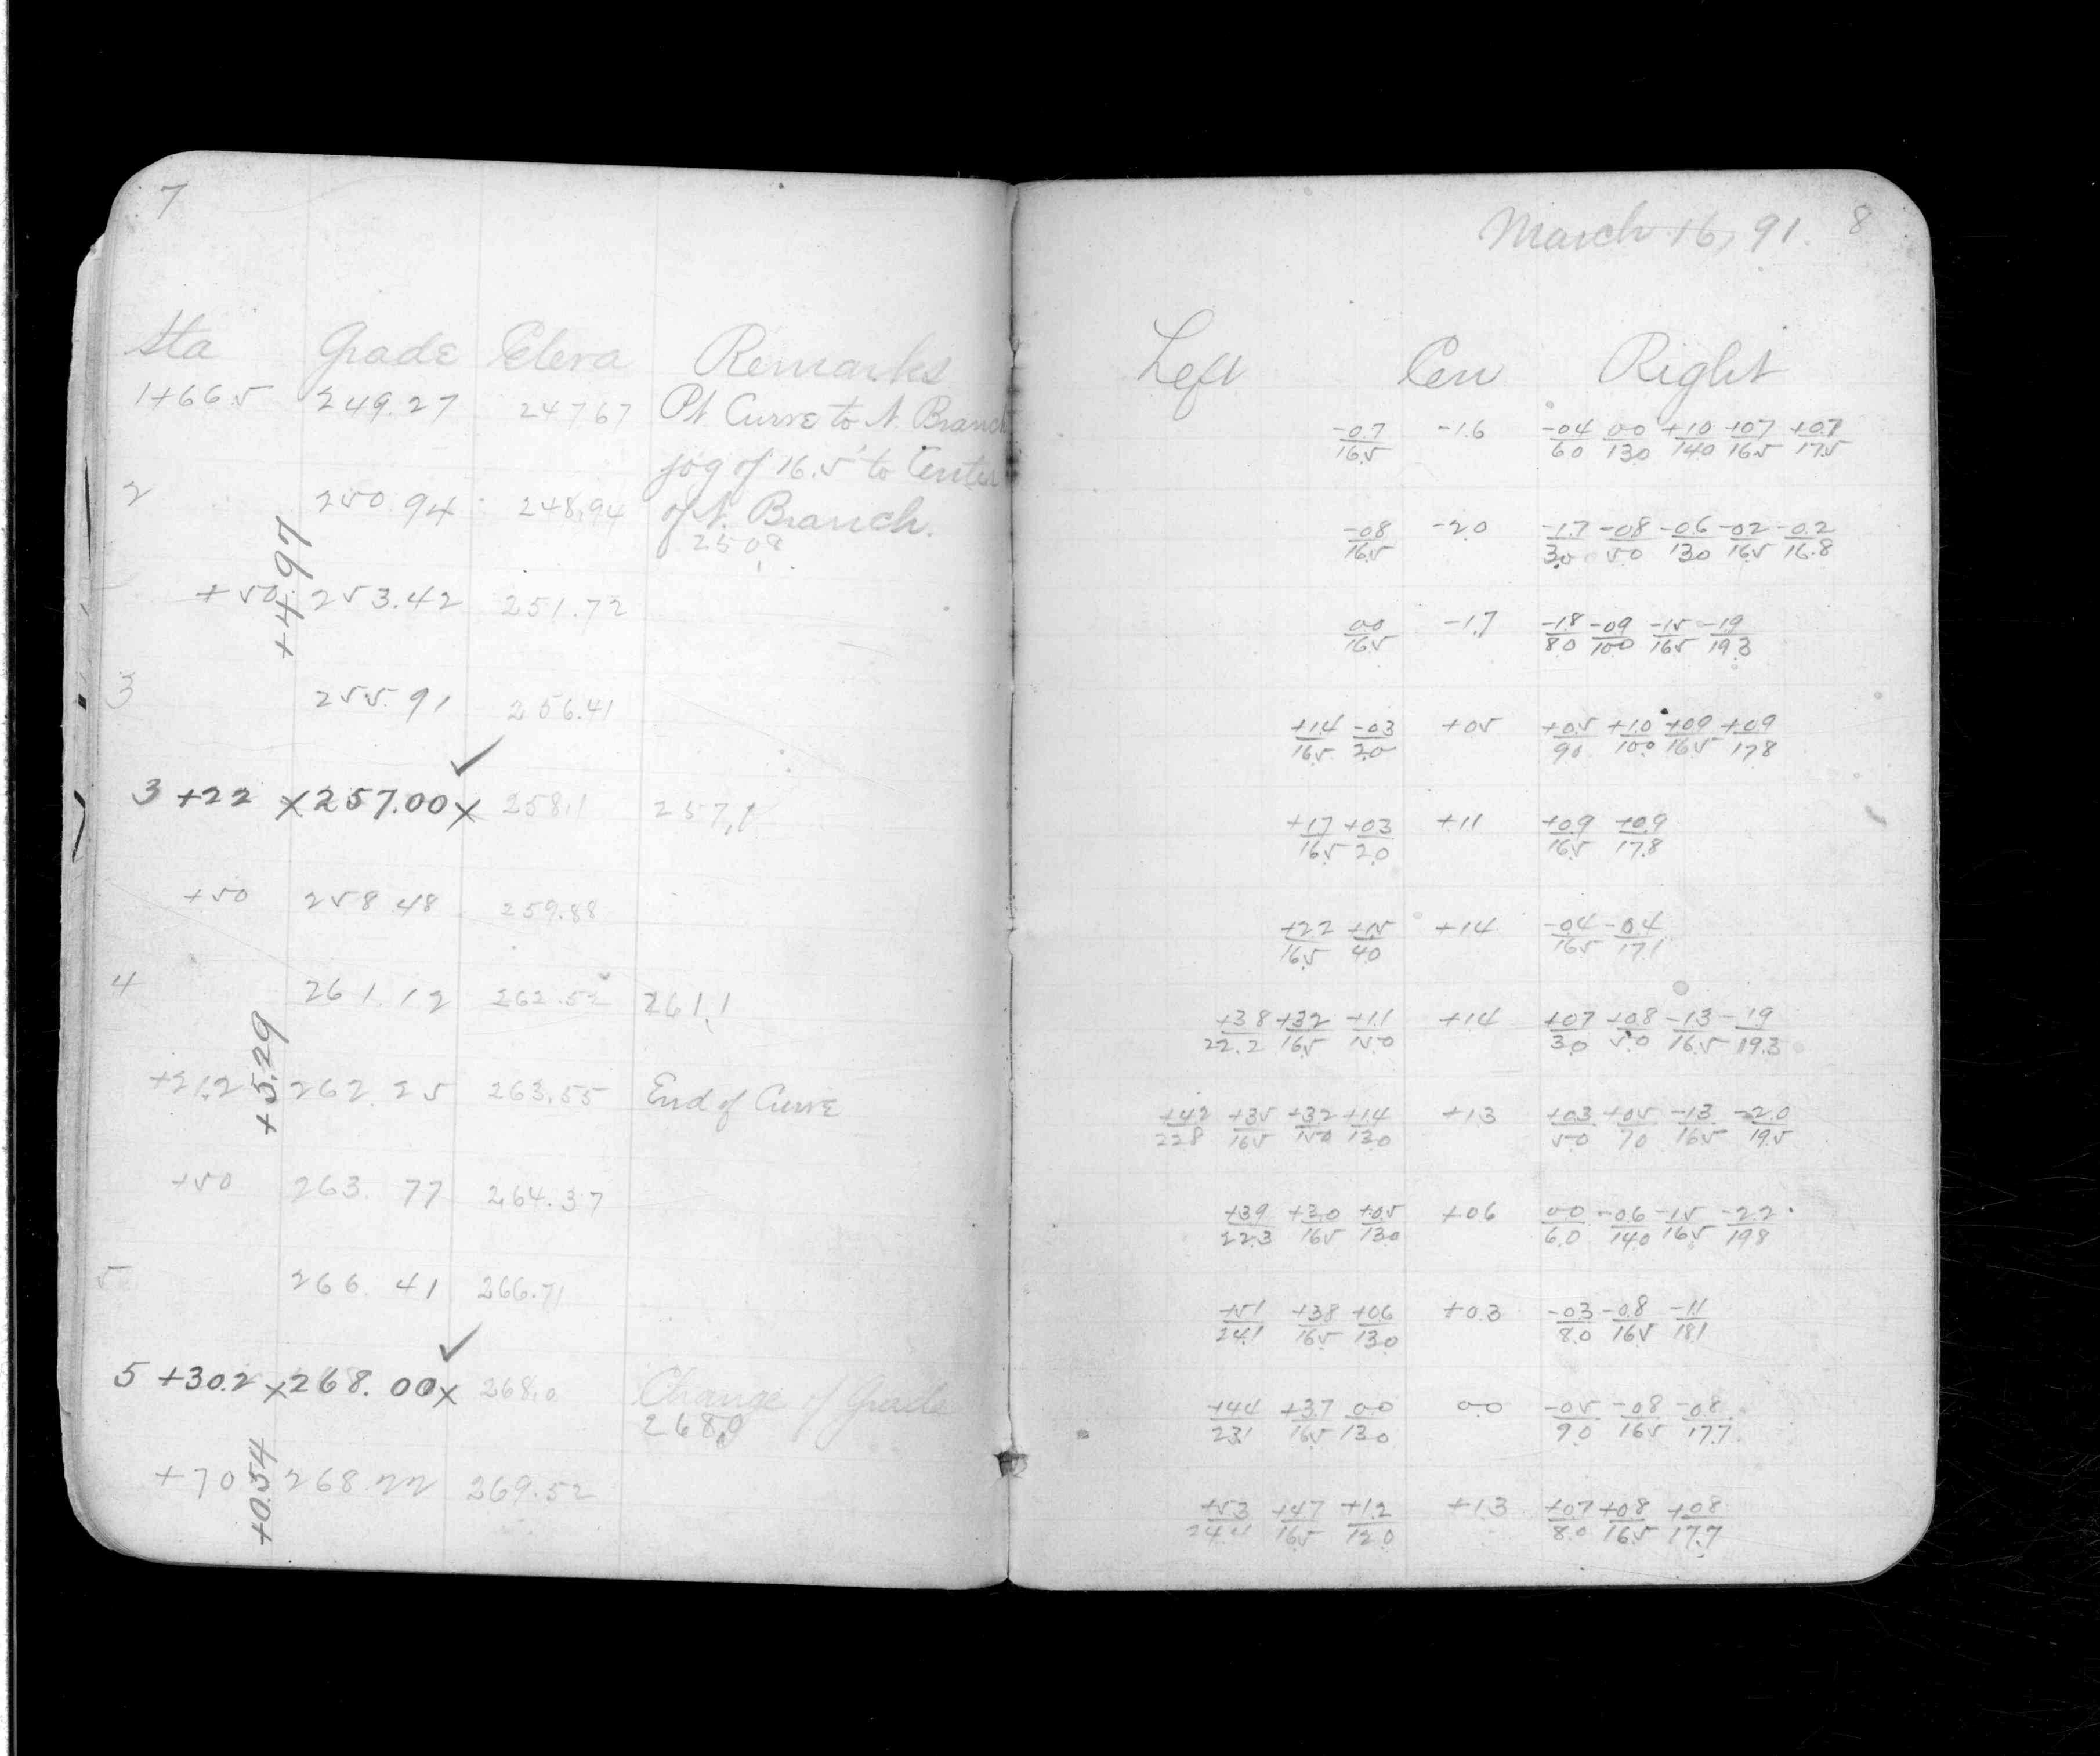 7
Sta Grade Eleva Remarks
1+66.5 249.27 247.67 Pt. Curve to N. Branch
jog of 16.5' to Center
2 250.94 248.94 of N. Branch.
250.9
+4.97
+50 253.42 251.72
3 255.91 256.41
3+22 x257.00x ✓ 258.1 257.1
+50 258.48 259.88
4 261.12 262.52 261.1
+5.29
+21.2 262.25 263.55 End of Curve
+50 263.77 264.37
5 266.41 266.71
5+30.2 x268.00x ✓ 268.0 Change of Grade
268.0
+0.54
+70 268.22 269.52
March 16, 91. 8
Left Cen Right
-0.7/16.5 -1.6 -0.4/6.0 0.0/13.0 +1.0/14.0 +0.7/16.5 +0.7/17.5
-0.8/16.5 -2.0 -1.7/3.0 -0.8/5.0 -0.6/13.0 -0.2/16.5 -0.2/16.8
0.0/16.5 -1.7 -1.8/8.0 -0.9/10.0 -1.5/16.5 -1.9/19.3
+1.4/16.5 -0.3/2.0 +0.5 +0.5/9.0 +1.0/10.0 +0.9/16.5 +0.9/17.8
+1.7/16.5 +0.3/2.0 +1.1 +0.9/16.5 +0.9/17.8
+2.2/16.5 +1.5/4.0 +1.4 -0.4/16.5 -0.4/17.1
+3.8/22.2 +3.2/16.5 +1.1/15.0 +1.4 +0.7/3.0 +0.8/5.0 -1.3/16.5 -1.9/19.3
+4.2/22.8 +3.5/16.5 +3.2/15.0 +1.4/13.0 +1.3 +0.3/5.0 +0.5/7.0 -1.3/16.5 -2.0/19.5
+3.9/22.3 +3.0/16.5 +0.5/13.0 +0.6 0.0/6.0 -0.6/14.0 -1.5/16.5 -2.2/19.8
+5.1/24.1 +3.8/16.5 +0.6/13.0 +0.3 -0.3/8.0 -0.8/16.5 -1.1/18.1
+4.4/23.1 +3.7/16.5 0.0/13.0 0.0 -0.5/9.0 -0.8/16.5 -0.8/17.7
+5.3/24.4 +4.7/16.5 +1.2/12.0 +1.3 +0.7/8.0 +0.8/16.5 +0.8/17.7